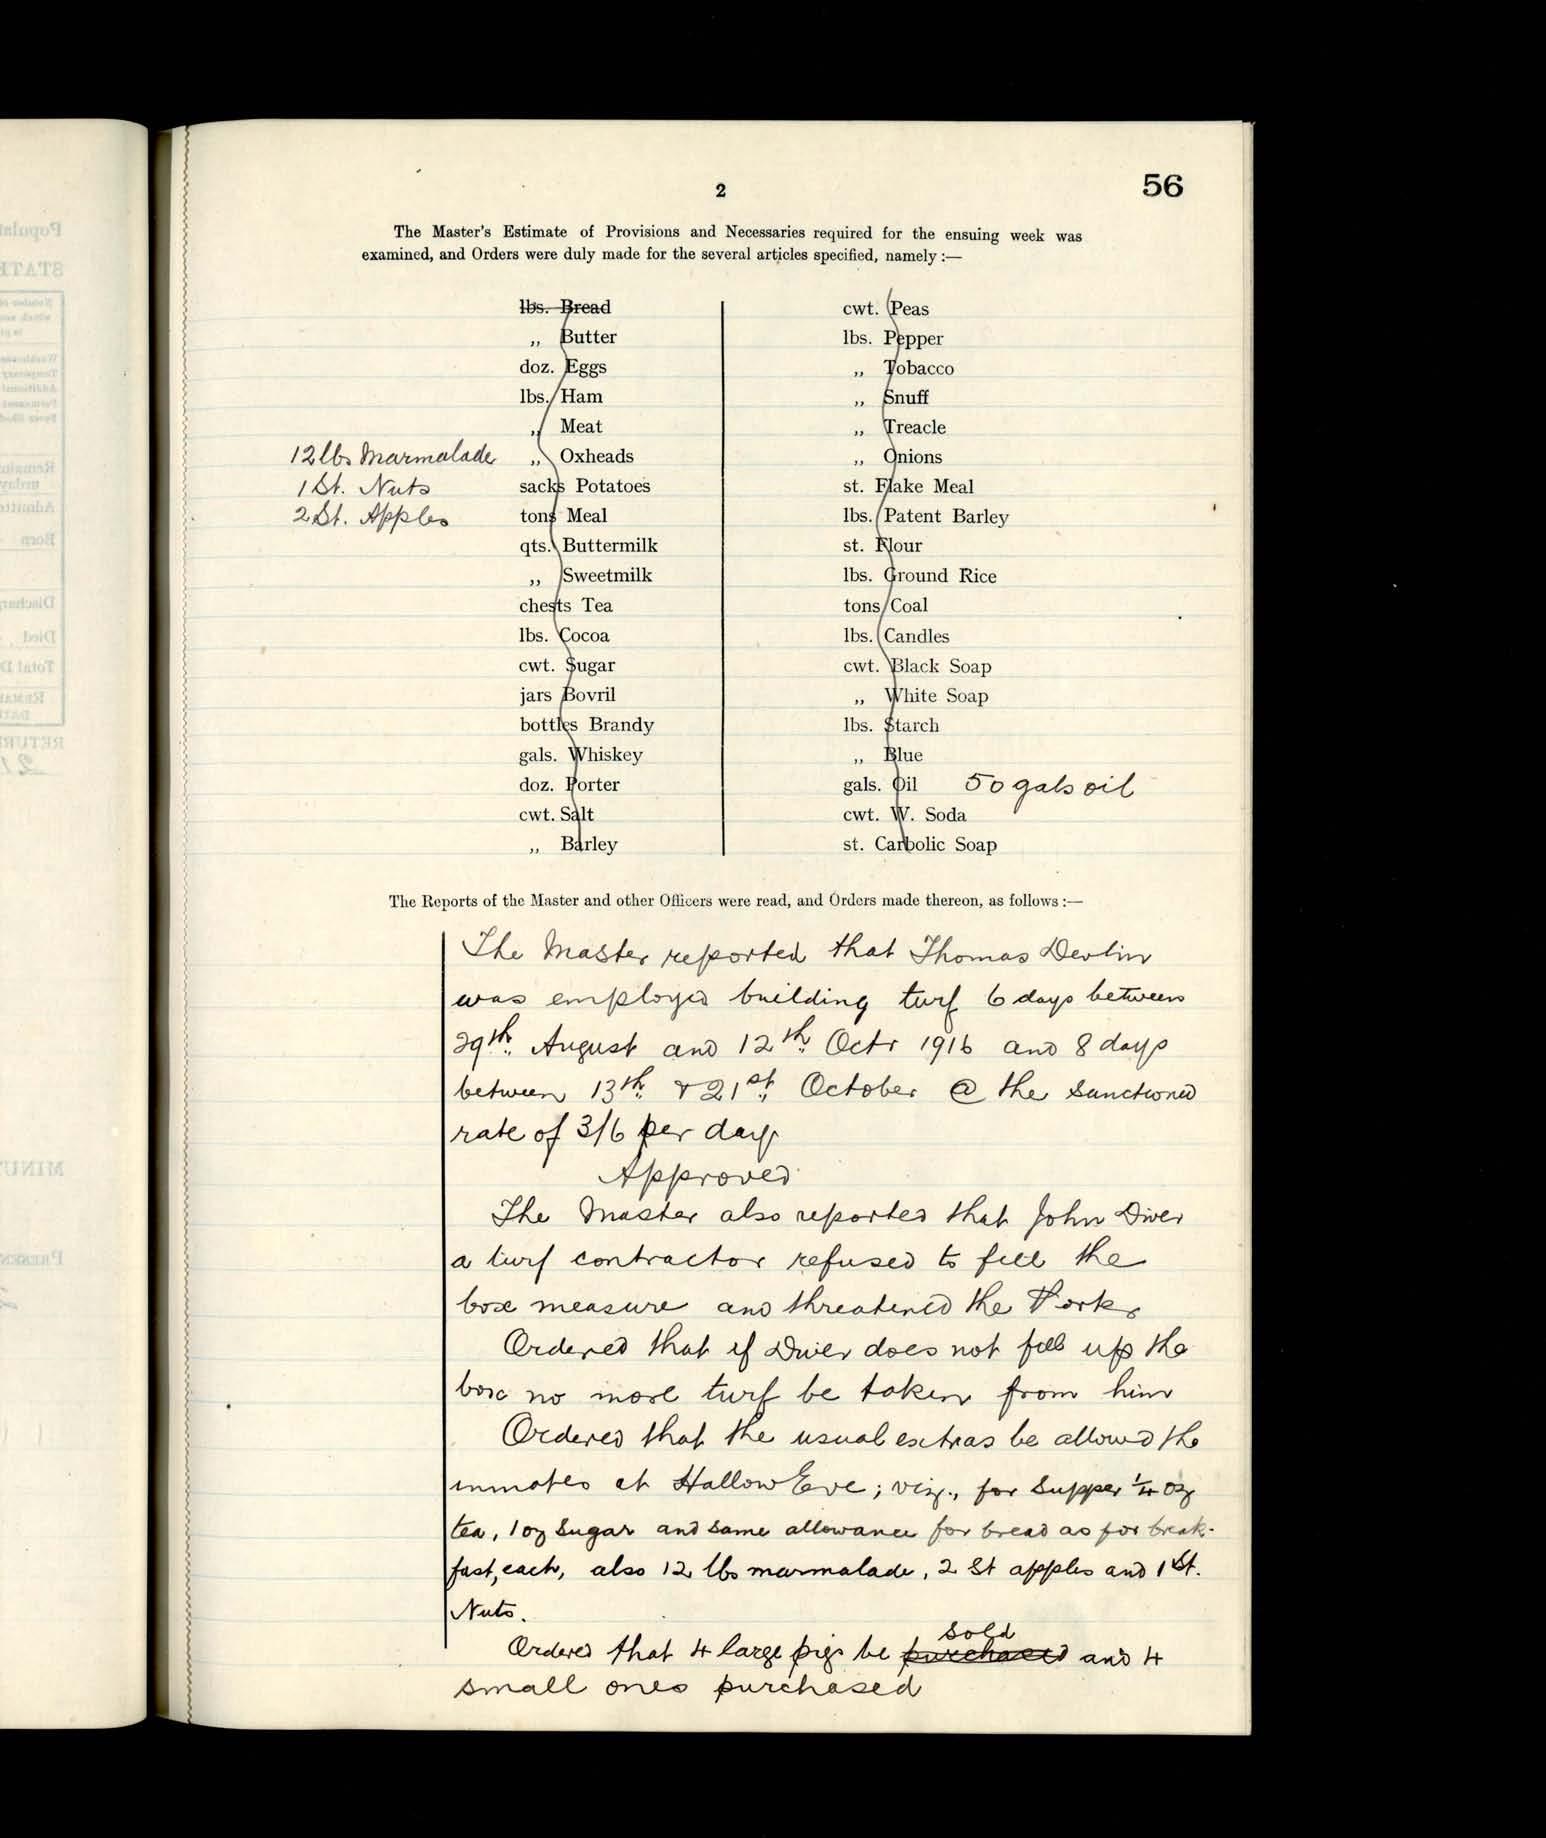 2
56
The Master's Estimate of Provisions and Necessaries required for the ensuing week was
examined, and Orders were duly made for the several articles specified, namely :—
lbs. Bread
„ Butter
doz. Eggs
lbs. Ham
„ Meat
12 lbs Marmalade „ Oxheads
1 St. Nuts sacks Potatoes
2 St. Apples tons Meal
qts. Buttermilk
„ Sweetmilk
chests Tea
lbs. Cocoa
cwt. Sugar
jars Bovril
bottles Brandy
gals. Whiskey
doz. Porter
cwt. Salt
„ Barley
cwt. Peas
lbs. Pepper
„ Tobacco
„ Snuff
„ Treacle
„ Onions
st. Flake Meal
lbs. Patent Barley
st. Flour
lbs. Ground Rice
tons Coal
lbs. Candles
cwt. Black Soap
„ White Soap
lbs. Starch
„ Blue
gals. Oil 50 gals oil
cwt. W. Soda
st. Carbolic Soap
The Reports of the Master and other Officers were read, and Orders made thereon, as follows :—
The Master reported that Thomas Devlin
was employed building turf 6 days between
29th August and 12th Octr 1916 and 8 days
between 13th & 21st October @ the sanctioned
rate of 3/6 per day.
Approved
The Master also reported that John Diver
a turf contractor refused to fill the
box measure and threatened the Porter
Ordered that if Diver does not fill up the
box no more turf be taken from him
Ordered that the usual extras be allowed the
inmates at Hallow Eve; viz., for Supper ¼ oz
tea, 1 oz Sugar and same allowance for bread as for break-
fast, each, also 12 lbs marmalade, 2 St apples and 1 St.
Nuts.
Ordered that 4 large pigs be purchased sold and 4
small ones purchased